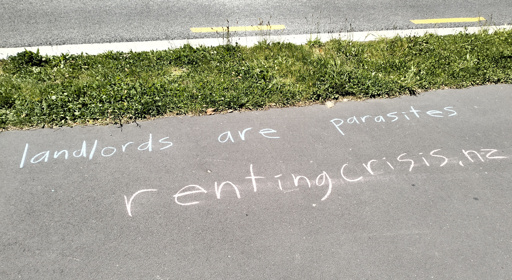 landlords are parasites
rentingcrisis.nz